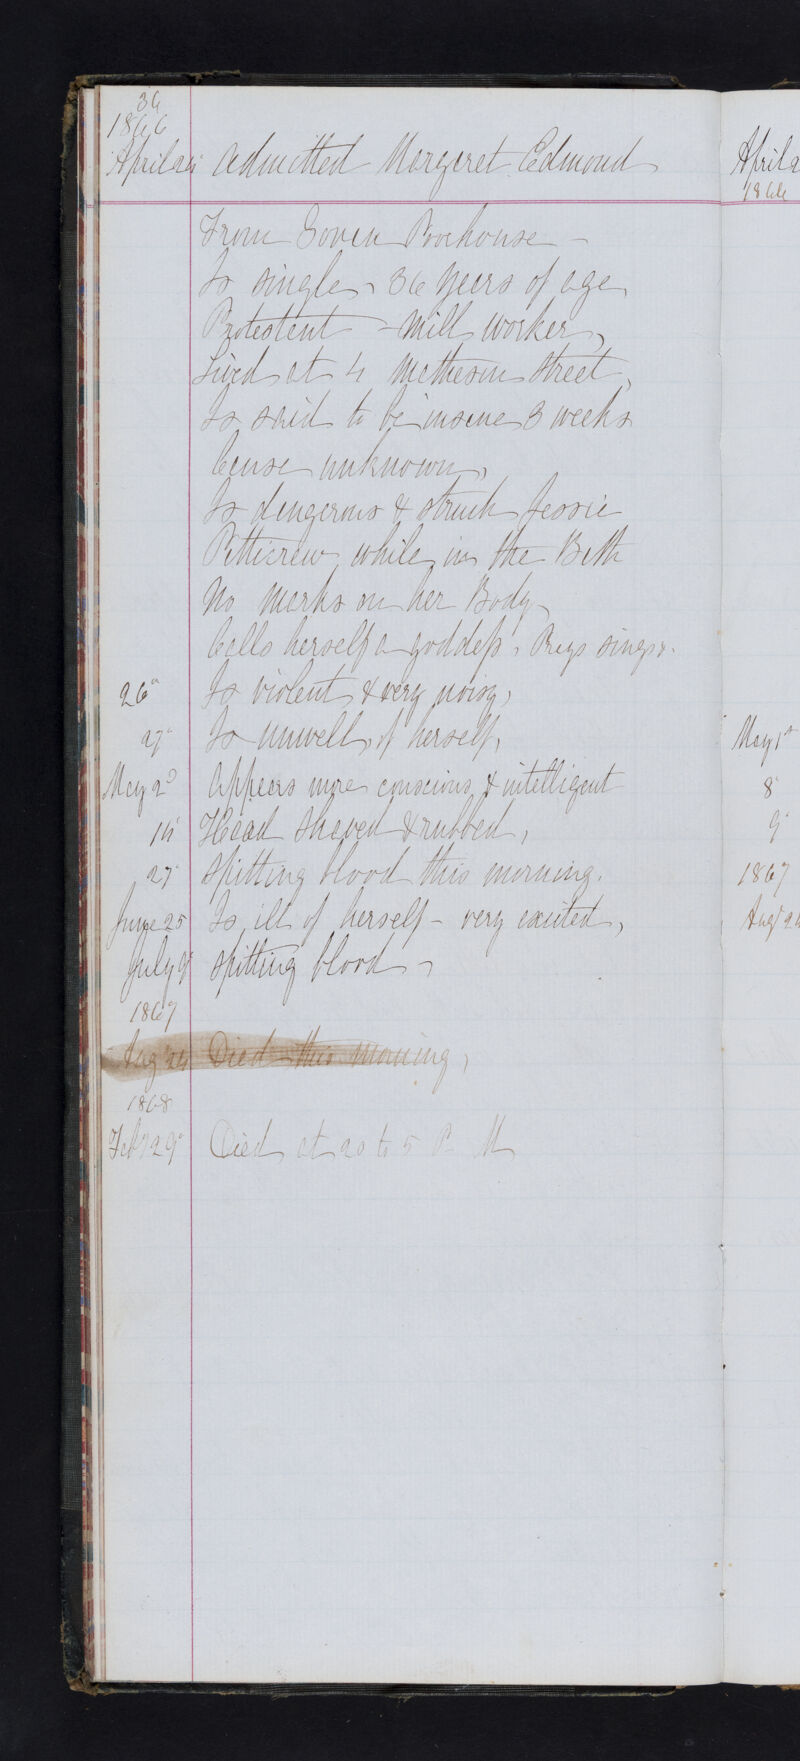 36
1866
April 24 Admitted Margaret Edmond
From Govan Poorhouse –
Is single, 36 years of age
Protestant – Mill worker,
Lived at 4 Matheson Street,
Is said to be insane 3 weeks
Cause unknown,
Is dangerous & struck Jessie
Petticrew while in the Bath
No marks on her Body,
Calls herself a goddess, Prays sings &.
26" Is violent & very noisy,
27" Is unwell of herself,
May 2d Appears more conscious & intelligent
14" Head shaved & rubbed,
27" Spitting blood this morning.
June 25 Is ill of herself – very excited,
July 9" Spitting blood –
1867
Aug 24 Died this morning,
1868
Feby 29" Died at 20 to 5 P M
April 2
1866
May 1st
8"
9"
1867
Augt 24